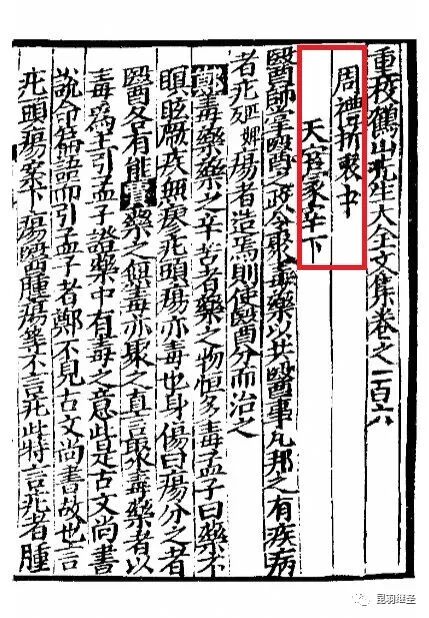 重校鶴山先生大全文集卷之一百六
周禮折衷中
天官冢宰下
醫師掌醫之政令聚毒藥以共醫事凡邦之有疾病
者疕婢瘍者造焉則使醫分而治之
鄭毒藥藥之辛苦者藥之物恒多毒孟子曰藥不
瞑眩厥疾無瘳疕頭瘍亦毒也身傷曰瘍分之者
醫各有能賈藥之無毒亦聚之直言聚毒藥者以
毒為主引孟子證藥中有毒之意此是古文尚書
說命篇語而引孟子者鄭不見古文尚書故也言
疕頭瘍案下瘍醫腫瘍等不言疕此特言疕者腫
昆羽继圣